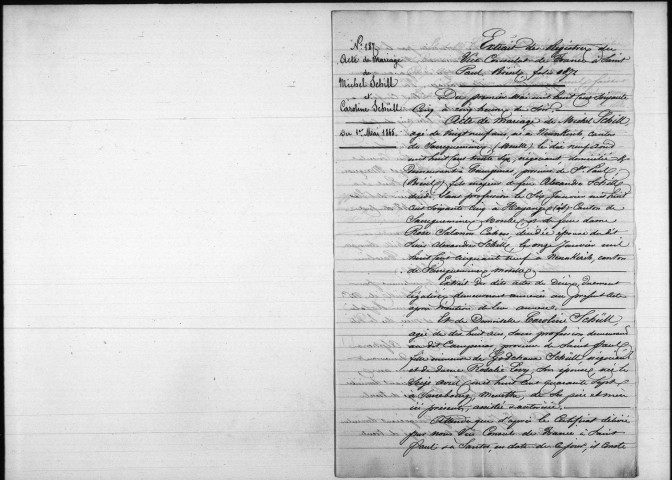 N° 187.
Acte de Mariage
de
Michel Schill
et
Caroline Schüll
Du 1er Mai 1865.
Extrait des Registres du
Vice Consulat de France à Saint
Paul, Brésil, folio
Du premier Mai mil huit cent soixante
Cinq à cinq heures du Soir
Acte de Mariage de Michel Schill
agé de vingt neuf ans, né à canton
de Sarreguemines (Moselle) le dix neuf Août
mil huit cent trente six, négociant, domicilié &
demeurant à Campinas, province de St Paul
(Brésil) fils majeur de feu Alexandre Schill
décédé, Sans profession, le Six Janvier mil huit
cent soixante Cinq à Canton de
Sarreguemines, Moselle & de feue dame
Rose Salomon Cahen, décédée épouse du dit
Sieur Alexandre Schill, le onze Janvier mil
huit cent cinquante neuf à canton
de Sarreguemines Moselle
Extrait des dits actes de Décès, dûment
légalisés demeureront annexés au présent acte
après mention de leur annexe.
Et de Demoiselle Caroline Schüll
agée de dix huit ans, Sans profession demeurant
au dit Campinas, province de Saint Paul
fille mineure de Godchaux Schüll négociant
et de dame Rosalie Son épouse, née le
Seize Avril mil huit cent quarante Sept
à Sarrebourg, Meurthe, de Ses père et mère
ici présents, assistée & autorisée.
Attendu que d'après le Certificat délivré
par nous Vice Consul de France à Saint
Paul & à Santos, en date de ce jour, il Conste